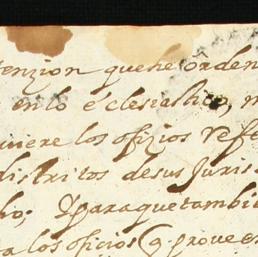 tenzion quehe orden
enlo eclesiastico, n
uiere los ofizios refe
distritos desus Juris
ho; Yparaquetambie
a los oficios (q proveen